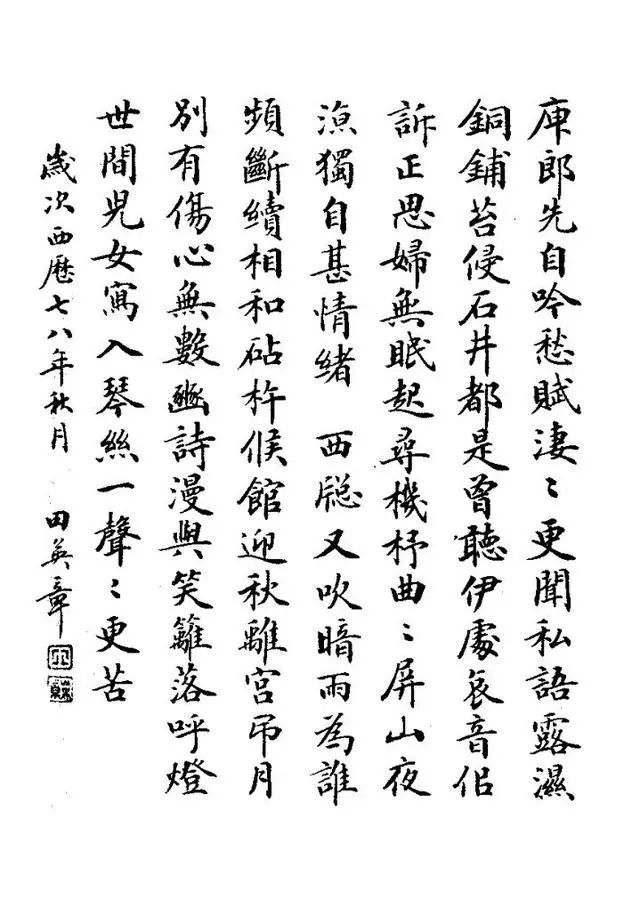 庾郎先自吟愁賦淒〻更聞私語露濕
銅鋪苔侵石井都是曾聽伊處哀音侣
訴正思婦無眠起尋機杼曲〻屏山夜
涼獨自甚情緒 西牕又吹暗雨為誰
頻斷續相和砧杵候館迎秋離宮吊月
別有傷心無數豳詩漫與笑籬落呼燈
世間兒女寫入琴絲一聲〻更苦
歲次西歷七八年秋月 田英章